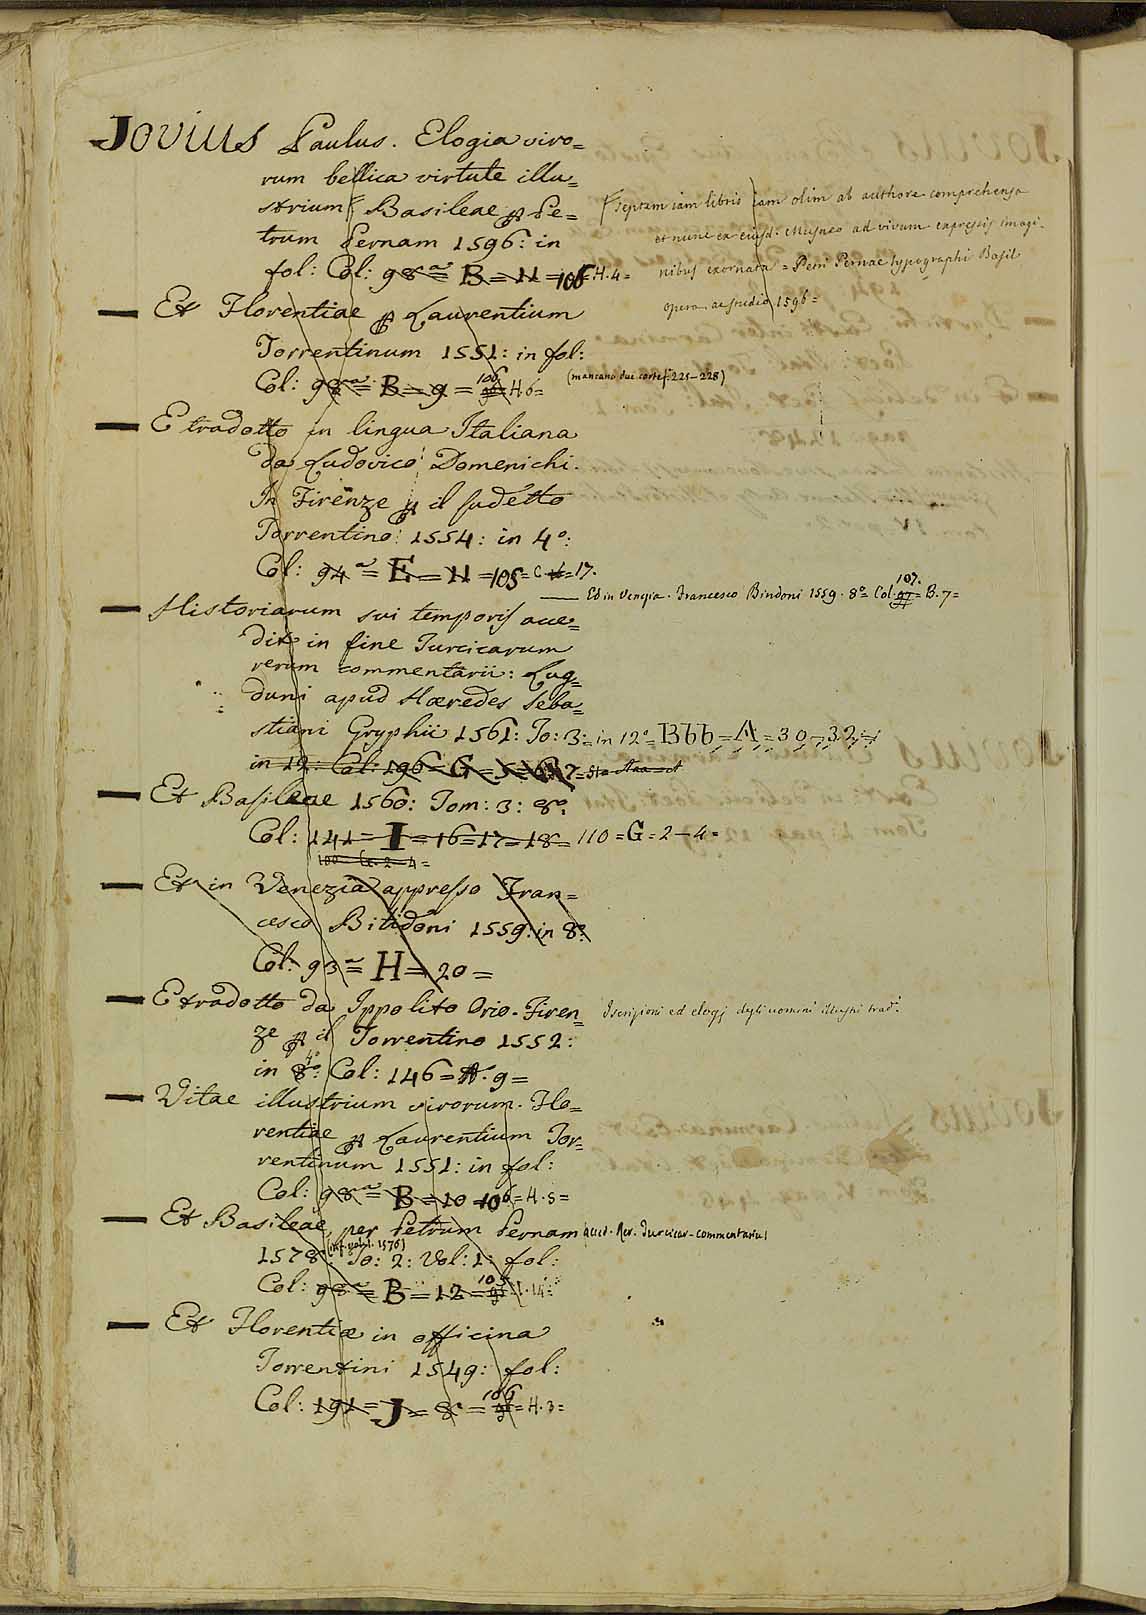 Jovius Paulus. Elogia viro=
rum bellica virtute illu=
strium Basileae per Pe=
trum Pernam 1596: in
fol: Col: 98 = B = 11 = 106 = H.4 =
septem iam libris iam olim ab authore comprehensa
et nunc ex eiusd: Musaeo ad vivum expressis imagi-
nibus exornata = Petri Pernae typographi Basil
opera ac studio 1596 =
— Et Florentiae per Laurentium
Torrentinum 1551: in fol:
Col: 98 = B = 9 = 106 = H.6 =
(mancano due carte f. 225-228)
— E tradotto in lingua Italiana
da Ludovico Domenichi.
In Firenze per il sudetto
Torrentino: 1554: in 4º:
Col: 94 = E = 11 = 105 = C = 17.
— Ed in Venezia. Francesco Bindoni 1559. 8º = Col. 97 107. = B.7 =
— Historiarum sui temporis acce=
dit in fine Turcicarum
rerum commentarii: Lug=
duni apud Haeredes Seba=
stiani Gryphii 1561: To: 3: = in 12º = Bbb = A = 30 - 32 =
in 12: Col: 196 = G = 5
— Et Basileae 1560: Tom: 3: 8º:
Col: 141 = I = 16 = 17 = 18 = 110 = G = 2 — 4 =
100 = G. 2 - 4 =
— Et in Venezia appresso Fran=
cesco Bindoni 1559: in 8º:
Col: 93 = H = 20 =
— E tradotto da Ippolito Orio. Firen=
ze per il Torrentino 1552:
in 8º: 4º Col: 146 = A. 9 =
Iscrizioni ed elogj degli uomini illustri trad:
— Vitae illustrium virorum. Flo=
rentiae per Laurentium Tor=
rentinum 1551: in fol:
Col: 98 = B = 10 106 = H.5 =
— Et Basileae, per Petrum Pernam acced. Rer. Turcicar. commentarius
1578: To: 2: Vol: 1: fol:
Col: 98 = B = 12 =
— Et Florentiæ in officina
Torrentini 1549: fol:
Col: 191 = J = 8 = 106 = H.3 =